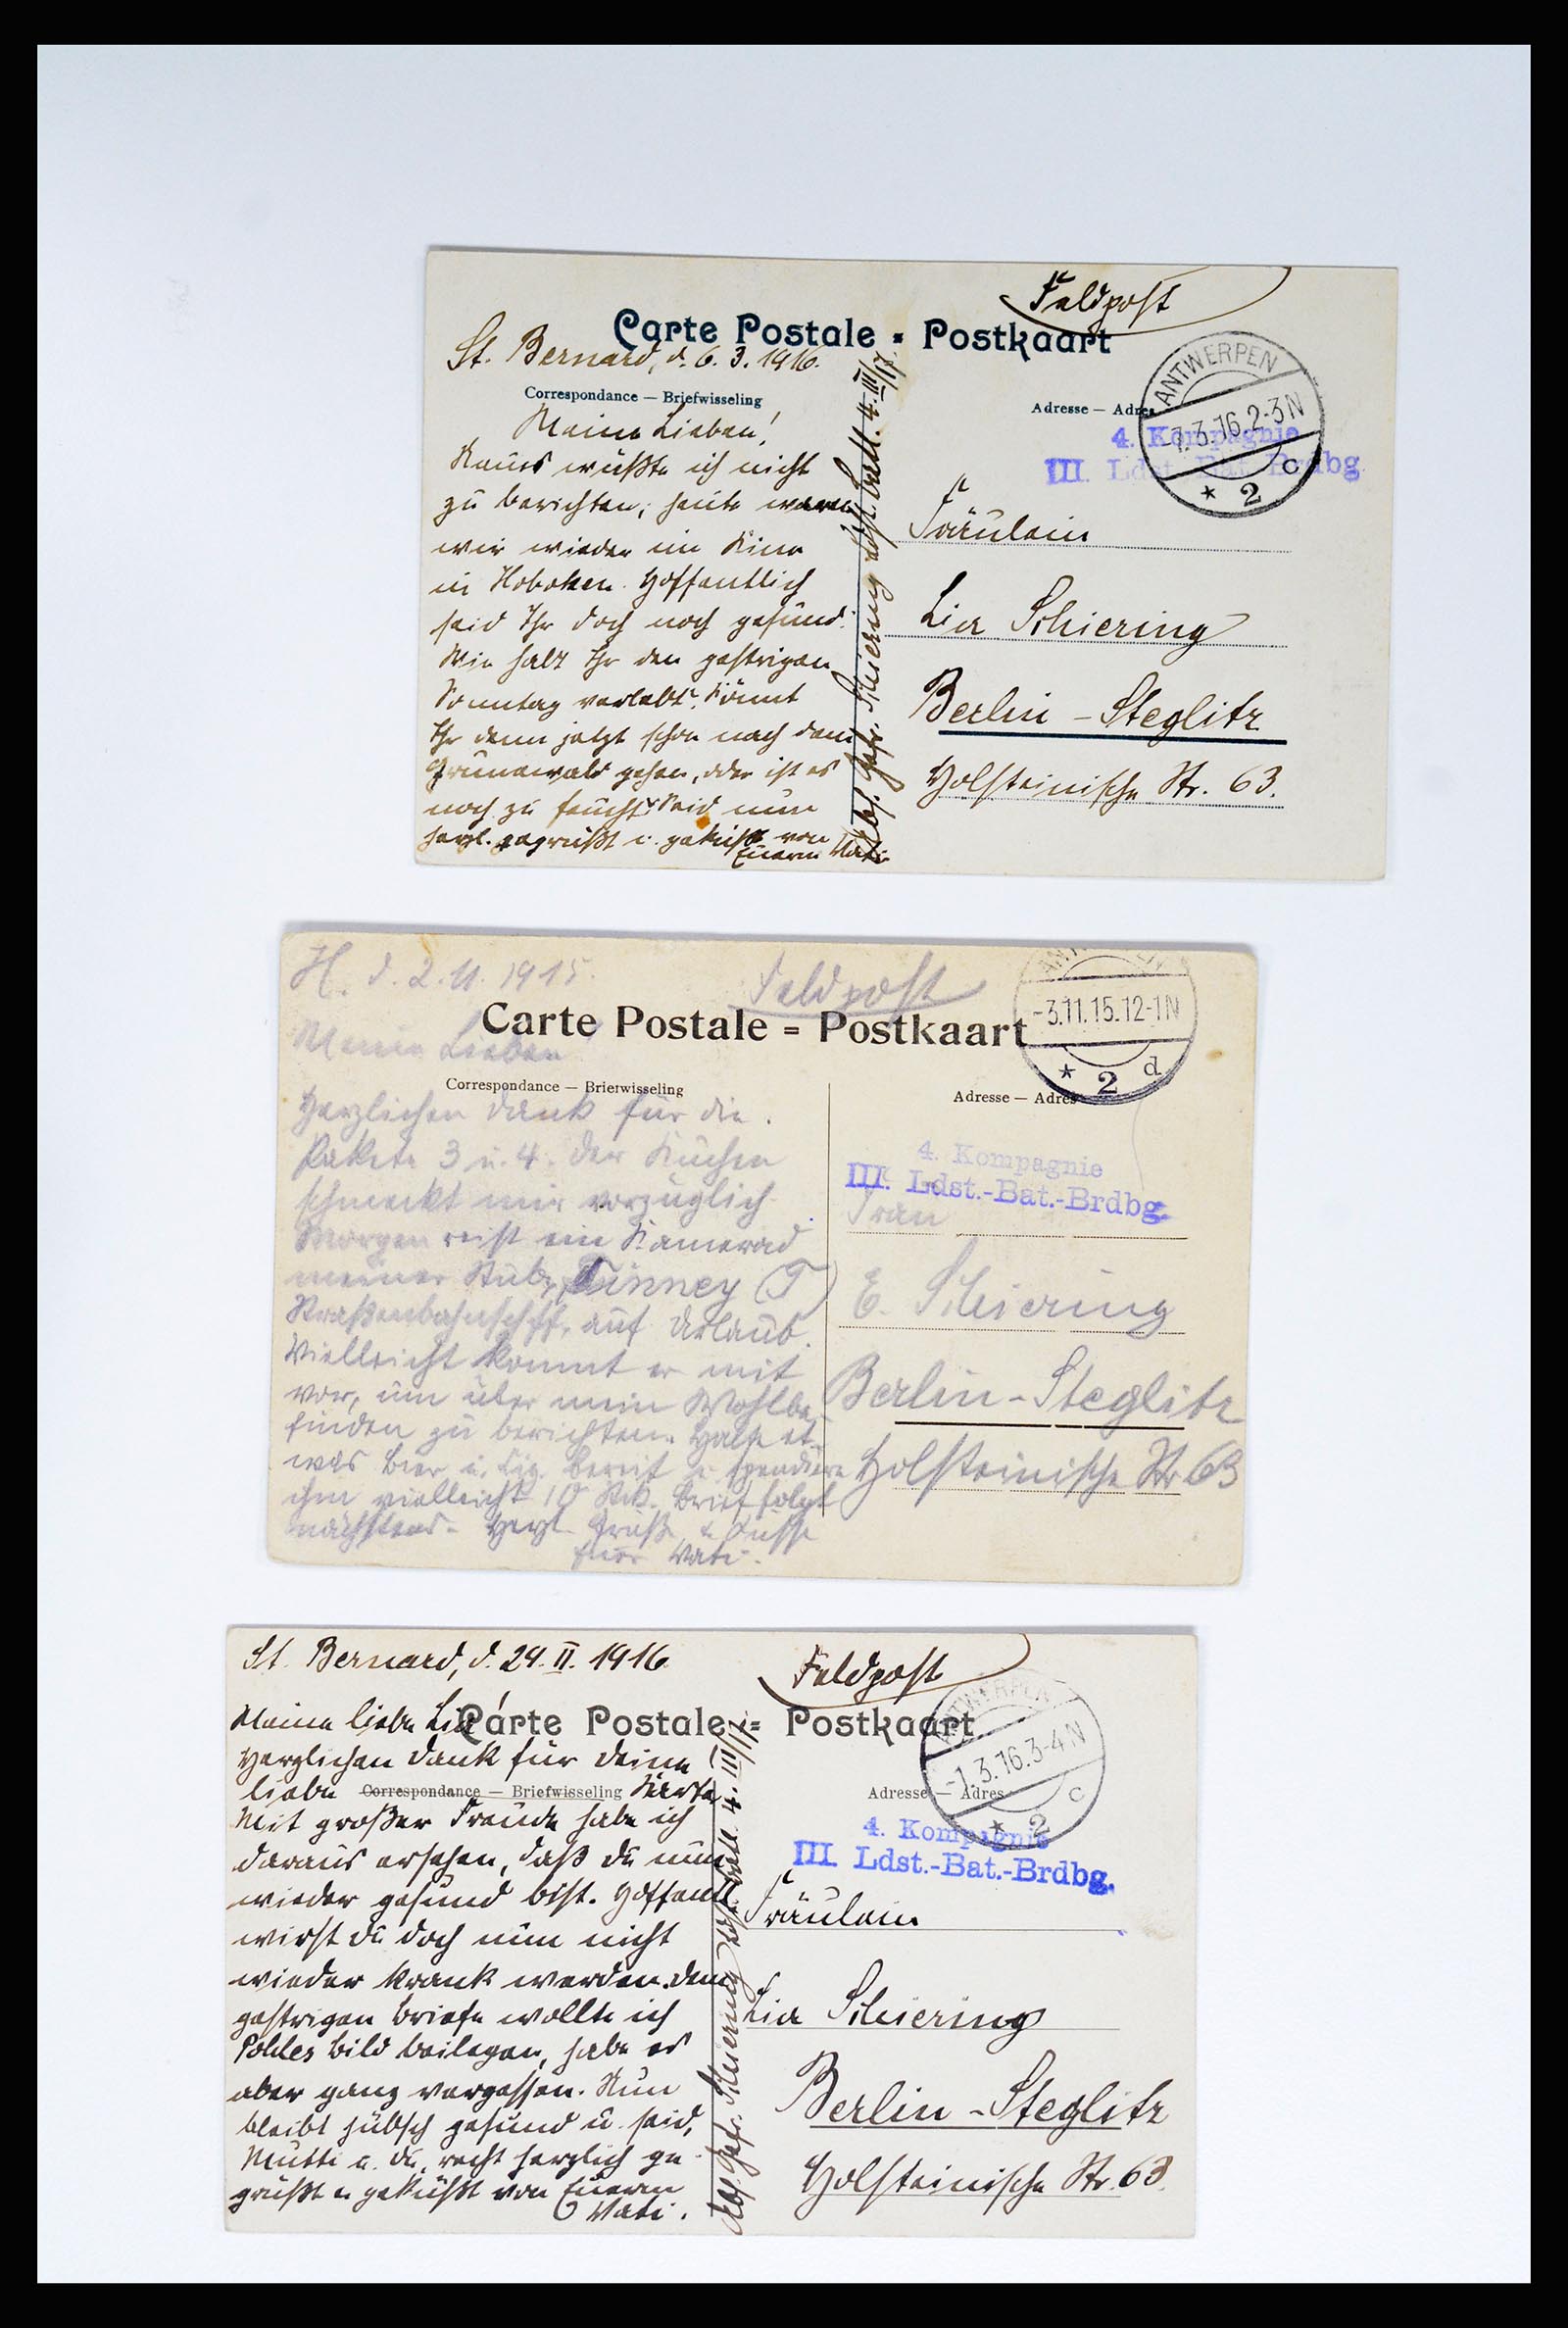 Feldpost
Carte Postale = Postkaart
St. Bernard, d. 6. 3. 1916.
Correspondance — Briefwisseling
Adresse — Adres
ANTWERPEN
-7.3.16.2-3N
* 2 c
4. Kompagnie
III. Ldst.-Bat.-Brdbg.
Meine Lieben!
Neues wüßte ich nicht
zu berichten; heute waren
wir wieder im Kino
in Hoboken. Hoffentlich
seid Ihr doch noch gesund.
Wie habt Ihr den gestrigen
Sonntag verlebt? Könnt
Ihr denn jetzt schon nach dem
Grunewald gehen, oder ist es
noch zu feucht? Seid nun
herzl. gegrüßt u. geküßt von
Euerm Vati
Abs. Gefr. Schiering Ldst. Batl. 4. III/17.
Fräulein
Lia Schiering
Berlin-Steglitz
Holsteinische Str. 63.
H. d. 2. 11. 1915.
Feldpost
Carte Postale = Postkaart
-3.11.15.12-1N
* 2 d
Meine Lieben
Correspondance — Briefwisseling
Adresse — Adres
Herzlichen Dank für die
Pakete 3 u. 4. Der Kuchen
schmeckt mir vorzüglich.
Morgen reist ein Kamerad
meiner Stube, Tinney (T)
Straßenbahnschff. auf Urlaub.
Vielleicht kommt er mit
vor, um über mein Wohlbe-
finden zu berichten. Halte et-
was Bier u. Zig. bereit u. spendiere
ihm vielleicht 10 Stck. Brief folgt
nächstens. Herzl. Grüße u. Küsse
Euer Vati.
4. Kompagnie
III. Ldst.-Bat.-Brdbg.
Frau
E. Schiering
Berlin-Steglitz
Holsteinische Str 63
St. Bernard, d. 29. II. 1916.
Feldpost
Carte Postale = Postkaart
ANTWERPEN
-1.3.16.3-4N
* 2 c
Meine liebe Lia!
Herzlichen Dank für Deine
liebe Karte.
Correspondance — Briefwisseling
Adresse — Adres
Mit großer Freude habe ich
daraus ersehen, daß Du nun
wieder gesund bist. Hoffentl.
wirst Du doch nun nicht
wieder krank werden. Dem
gestrigen Briefe wollte ich
Pohles Bild beilegen, habe es
aber ganz vergessen. Nun
bleibt hübsch gesund u. seid,
Mutti u. Du, recht herzlich ge-
grüßt u. geküßt von Euerm
Vati.
Abs. Gefr. Schiering Ldst. Batl. 4. III/17.
4. Kompagnie
III. Ldst.-Bat.-Brdbg.
Fräulein
Lia Schiering
Berlin-Steglitz
Holsteinische Str. 63.